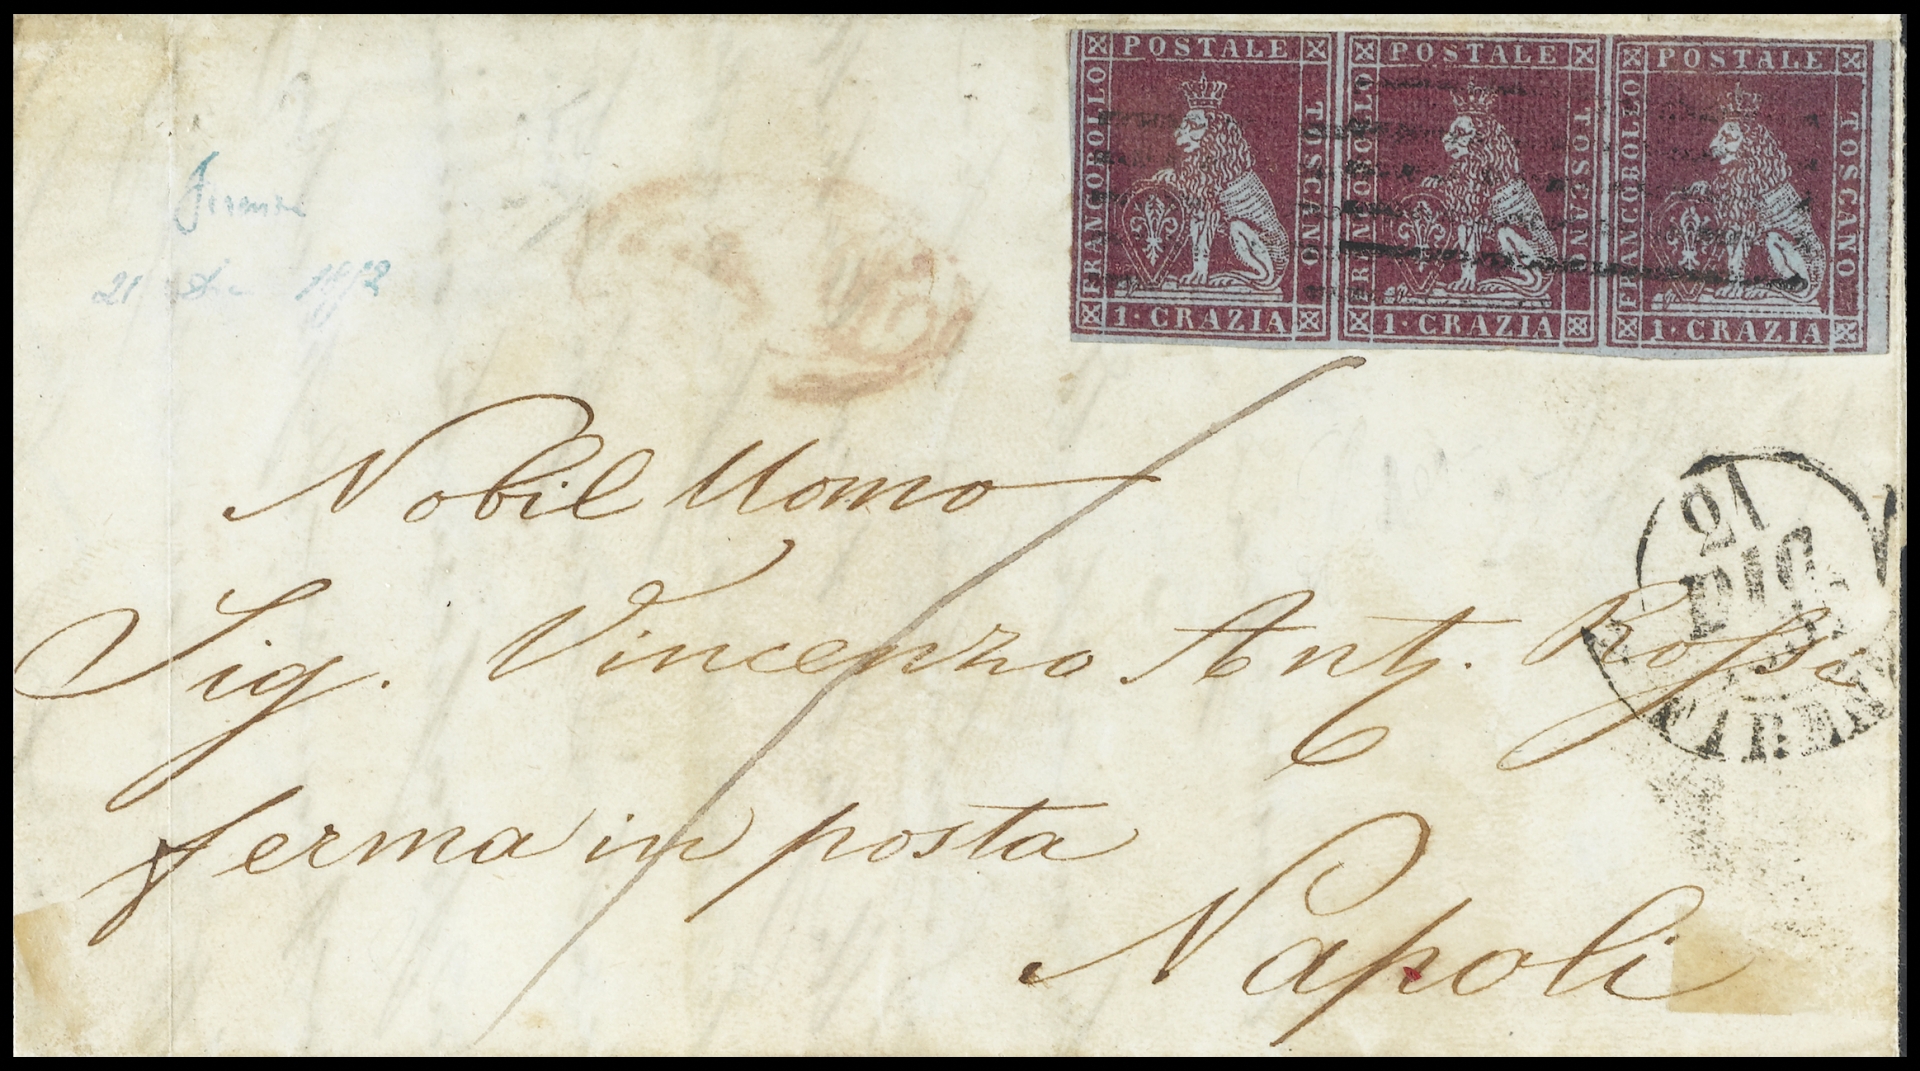 POSTALE POSTALE POSTALE
FRANCOBOLLO TOSCANO FRANCOBOLLO TOSCANO FRANCOBOLLO TOSCANO
1·CRAZIA 1·CRAZIA 1·CRAZIA
Firenze
21 Dic 1852
Nobil Uomo
21
DIC
Sig. Vincenzo Ant. Rossi
FIRENZE
ferma in posta
Napoli